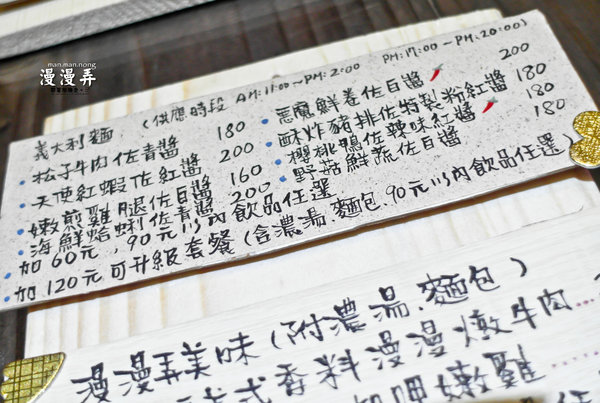 man.man.nong
漫漫弄
義大利麵 (供應時段 AM:11:00~PM:2:00 PM:17:00~PM:20:00)
松子牛肉佐青醬 180
天使紅蝦佐紅醬 200
嫩煎雞腿佐白醬 160
海鮮蛤蜊佐青醬 200
惡魔鮮卷佐白醬 200
酥炸豬排佐特製粉紅醬 180
櫻桃鴨佐辣味紅醬 180
野菇鮮蔬佐白醬 180
加60元,90元以內飲品任選
加120元可升級套餐(含濃湯.麵包.90元以內飲品任選)
漫漫弄美味(附濃湯.麵包)
式香料漫漫燉牛肉
咖哩嫩雞